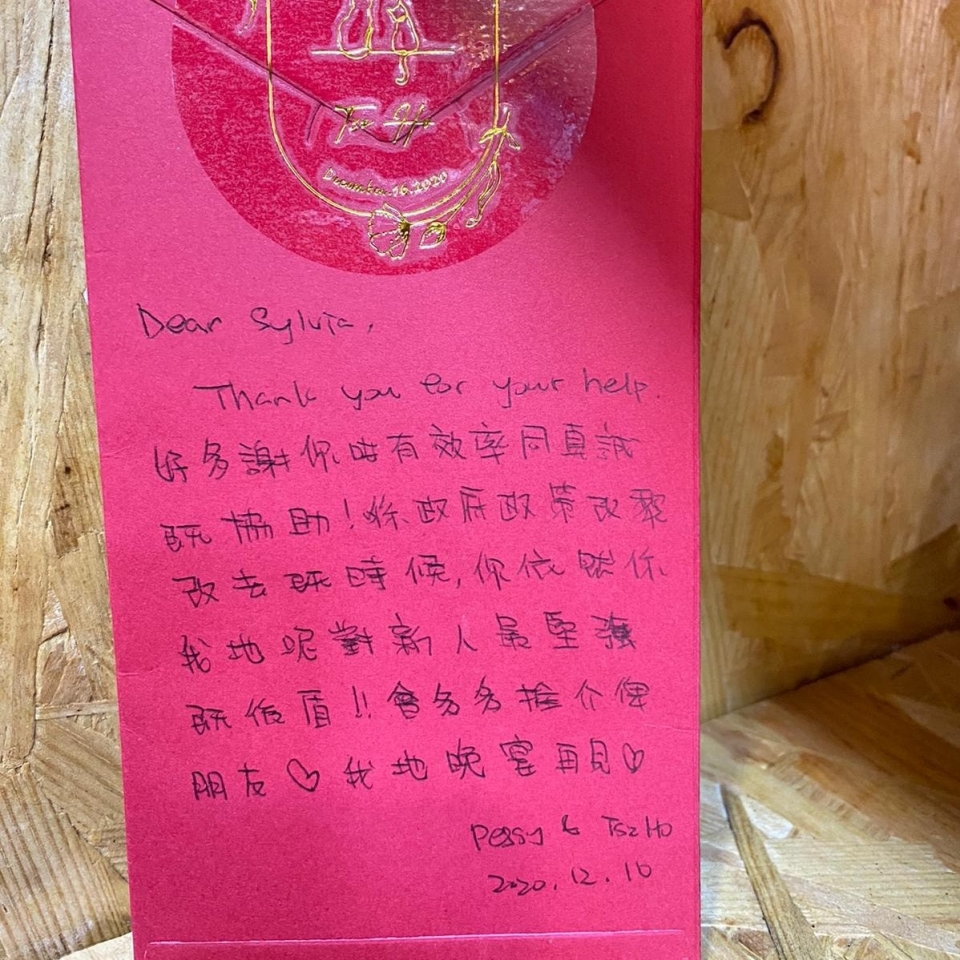 Tsz Ho
December.16.2020
Dear Sylvia,
Thank you for your help.
好多謝你咁有效率同真誠
既協助！係政府政策改黎
改去既時候，你依然係
我地呢對新人最堅強
既後盾!!會多多推介俾
朋友♡我地晚宴再見♡
Peggy & Tsz Ho
2020.12.16